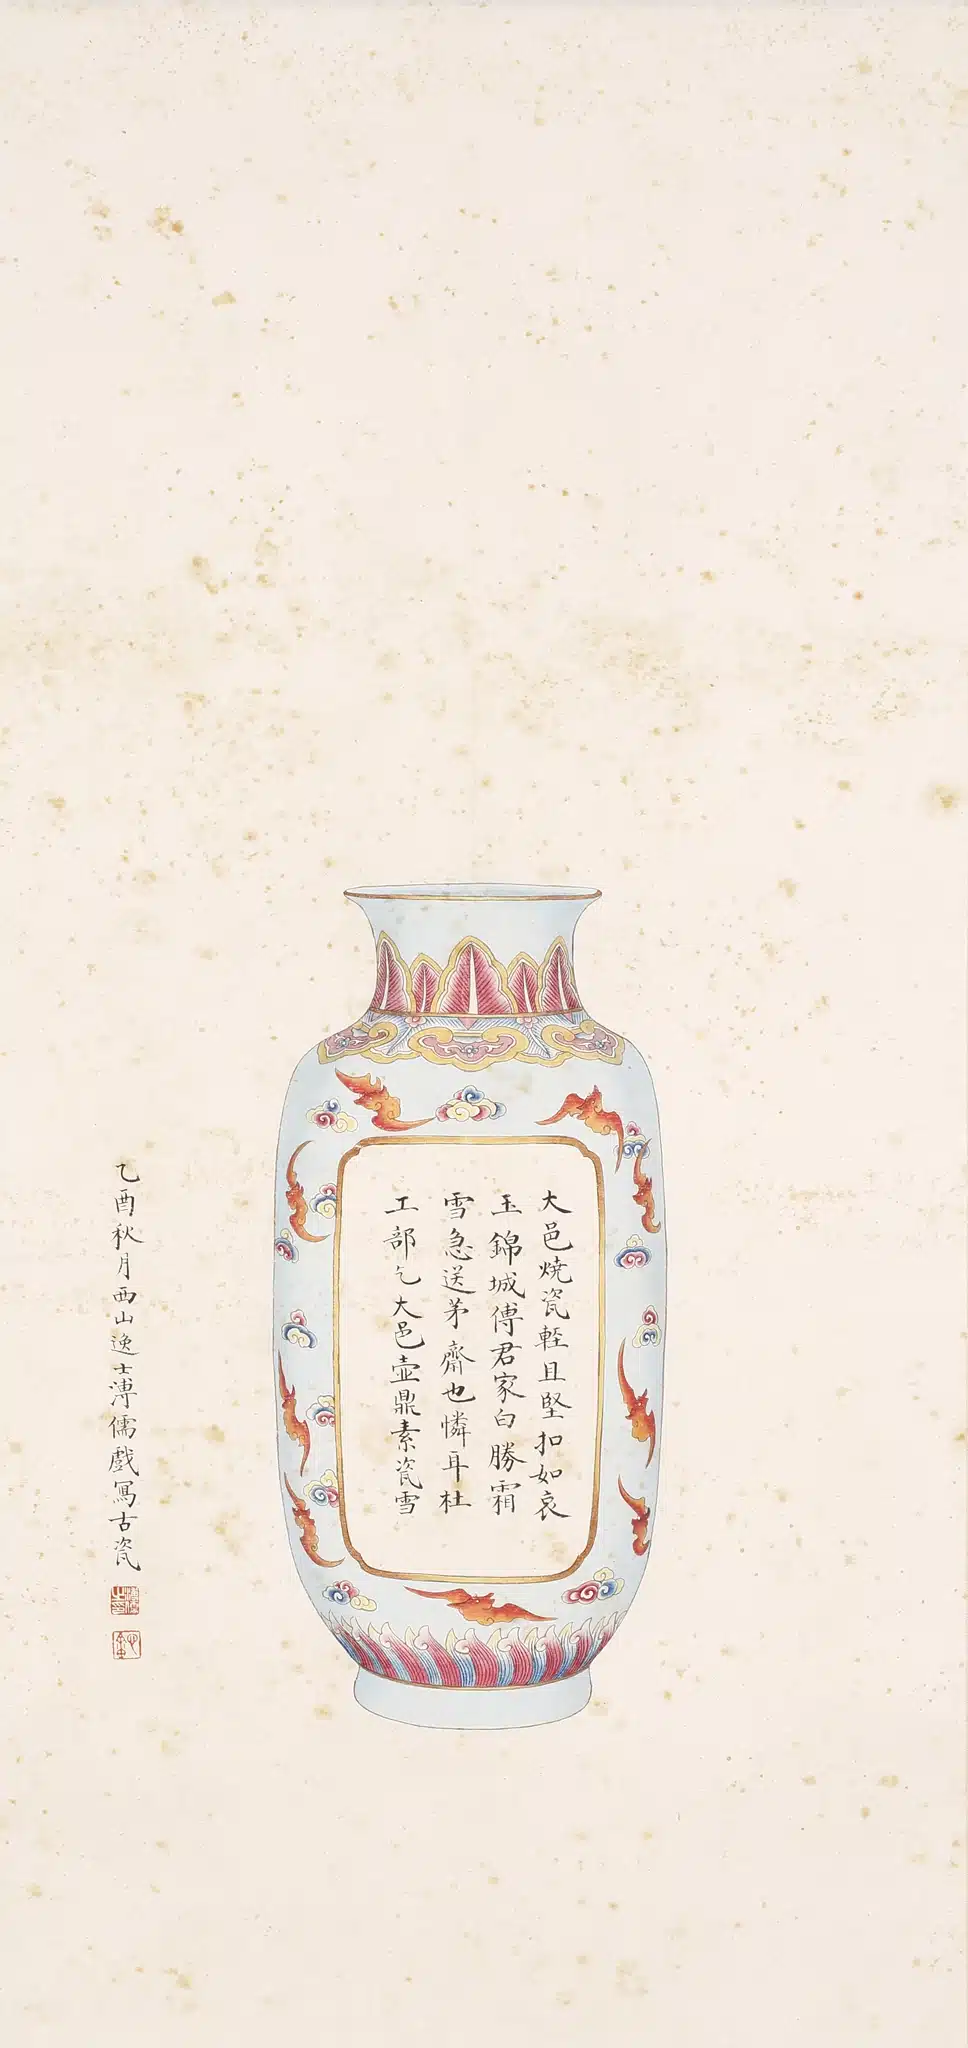 大邑燒瓷輊且堅扣如哀
玉錦城傳君家白勝霜
雪急送茅齋也憐耳杜
工部乞大邑壺鼎素瓷雪
乙酉秋月西山逸士溥儒戲寫古瓷